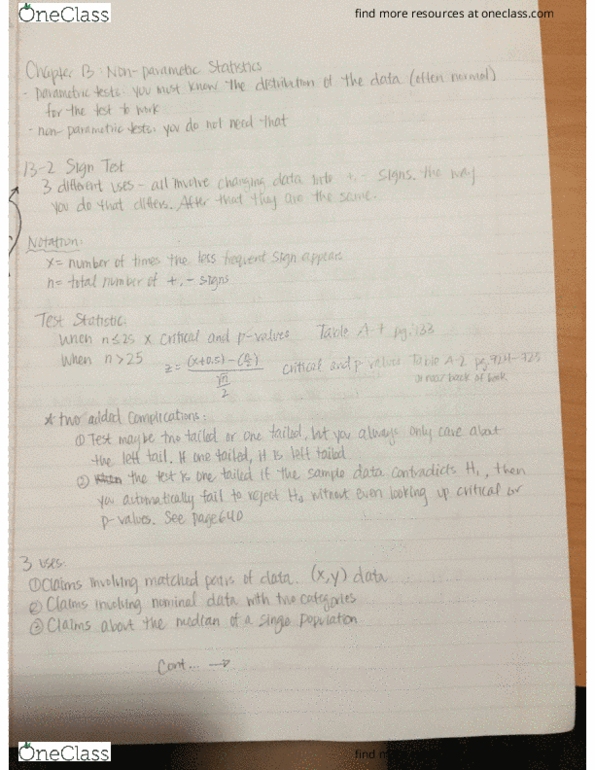 OneClass
find more resources at oneclass.com
Chapter 13: Non-parametic Statistics
- parametric tests: you must know the distribution of the data (often normal)
for the test to work
- non-parametric tests: you do not need that
13-2 Sign Test
3 different uses - all involve changing data into +, - signs. the way
you do that differs. After that they are the same.
Notation:
x = number of times the less frequent sign appears
n = total number of +, - signs
Test Statistic
When n ≤ 25 x critical and p-values Table A-7 pg.
When n > 25 z = (x+0.5)-(n/2) / √n/2 critical and p values Table A-2 pg. 724-725
or near back of book
* two added complications:
① Test may be two tailed or one tailed, but you always only care about
the left tail. If one tailed, it is left tailed
② the test is one tailed if the sample data contradicts H₁, then
you automatically fail to reject H₀ without even looking up critical or
p-values. See page 640
3 uses:
① Claims involving matched pairs of data. (x,y) data
② Claims involving nominal data with two categories
③ Claims about the median of a single population
Cont... →
OneClass
find m